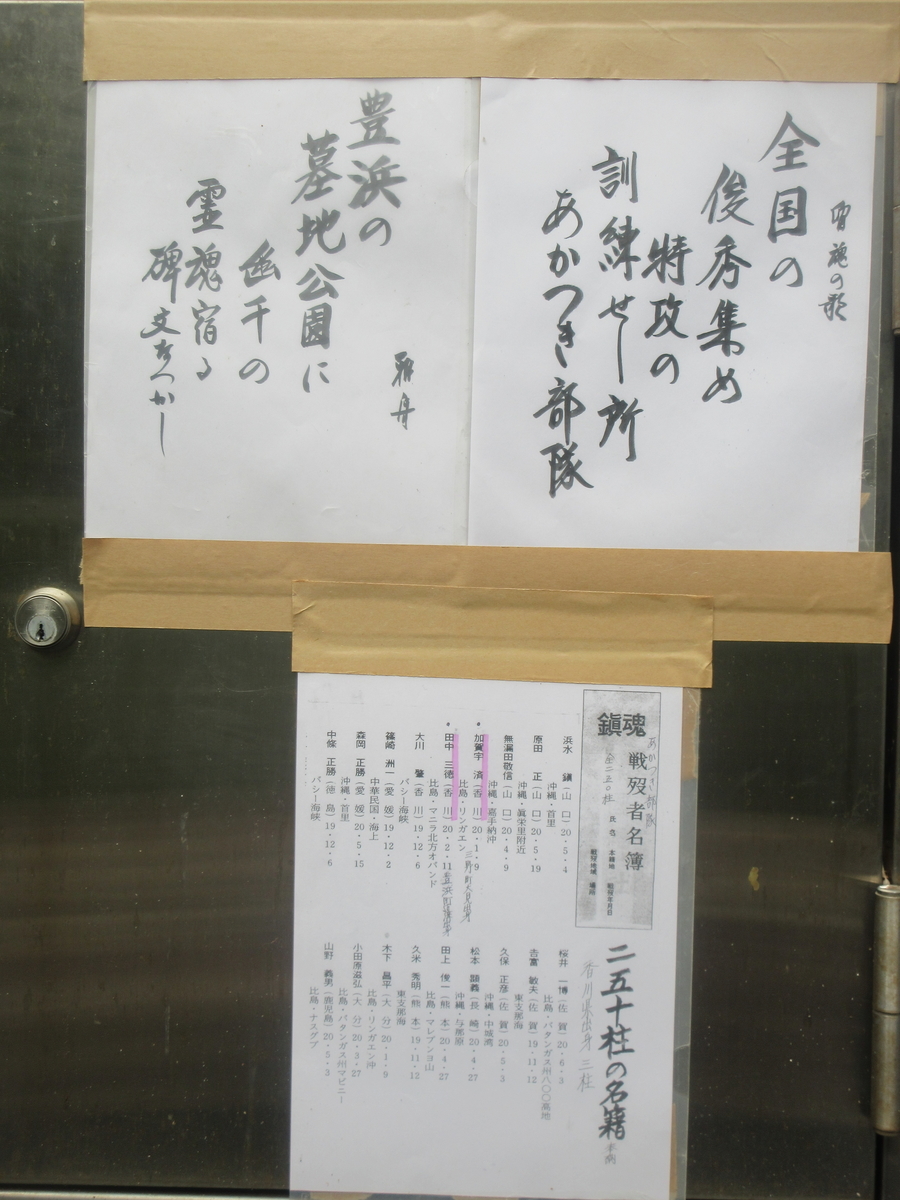 全国の
俊秀集め
特攻の
訓練せし所
あかつき部隊
豊浜の
墓地公園に
幽千の
霊魂宿る
碑文なつかし
雅舟
鎮魂
戦歿者名簿
氏名 本籍地 戦歿年月日
戦歿地域 場所
二五十柱の名籍
香川県出身三柱
浜水 鎭(山口)20・5・4
沖縄・首里
原田 正(山口)20・5・19
沖縄・眞栄里附近
無漏田敬信(山口)20・4・9
沖縄・嘉手納沖
加賀宇 済(香川)20・1・9
比島・リンガエン
田中 三徳(香川)20・2・11
比島・マニラ北方オバンド
大川 肇(香川)19・12・6
バシー海峡
篠崎 洲一(愛媛)19・12・2
中華民国・海上
森岡 正勝(愛媛)20・5・15
沖縄・首里
中條 正勝(徳島)19・12・6
バシー海峡
桜井 一博(佐賀)20・6・3
比島・バタンガス州八〇〇高地
吉富 敏夫(佐賀)19・11・12
東支那海
久保 正彦(佐賀)20・5・3
沖縄・中城湾
松本 勝義(長崎)20・4・27
沖縄・与那原
田上 俊一(熊本)20・4・27
比島・マレブンヨ山
久米 秀明(熊本)19・11・12
東支那海
木下 昌平(大分)20・1・9
比島・リンガエン沖
小田原滋弘(大分)20・3・27
比島・バタンガス州マビニー
山野 義男(鹿児島)20・5・3
比島・ナスグブ